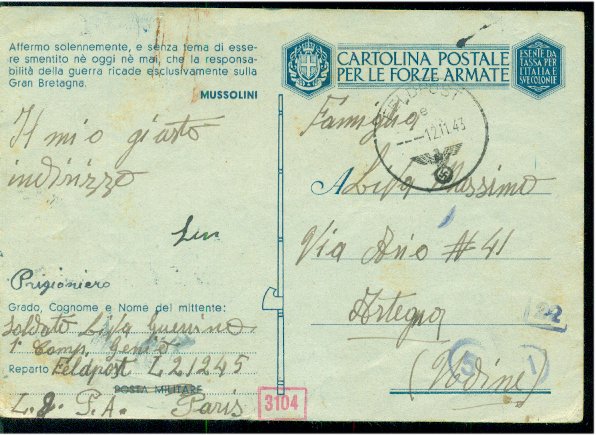 Affermo solennemente, e senza tema di esse-
re smentito nè oggi nè mai, che la responsa-
bilità della guerra ricade esclusivamente sulla
Gran Bretagna.
MUSSOLINI
Il mio giusto
indirizzo
Prigioniero
Grado, Cognome e Nome del mittente:
Soldato Liva Guerrino
1ª Comp. Genio
Reparto Feldpost L 21245
POSTA MILITARE
P.A. Paris
3104
CARTOLINA POSTALE
PER LE FORZE ARMATE
ESENTE DA
TASSA PER
L'ITALIA E
SVE COLONIE
FELDPOST
e
12.11.43
Famiglia
A Liva Massimo
Via Ario # 41
Artegna
(Udine)
22
5
1